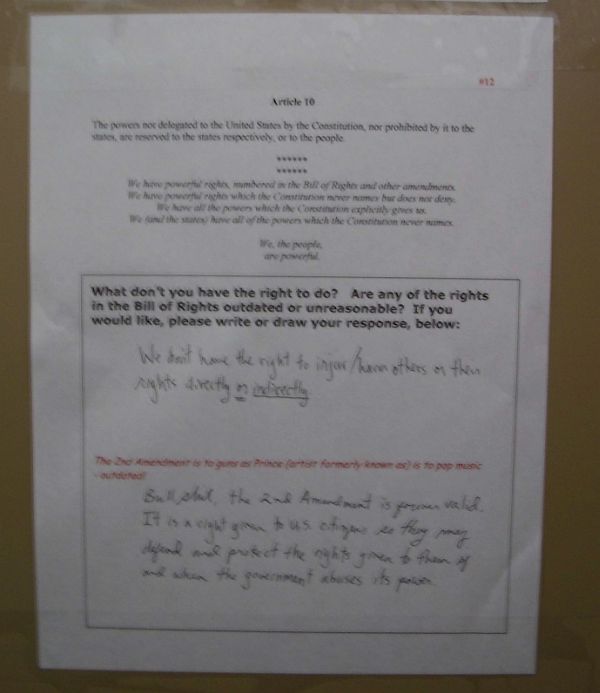 #12
Article 10
The powers not delegated to the United States by the Constitution, nor prohibited by it to the
states, are reserved to the states respectively, or to the people.
******
******
We have powerful rights, numbered in the Bill of Rights and other amendments.
We have powerful rights which the Constitution never names but does not deny.
We have all the powers which the Constitution explicitly gives us.
We (and the states) have all of the powers which the Constitution never names.
We, the people,
are powerful.
What don't you have the right to do? Are any of the rights
in the Bill of Rights outdated or unreasonable? If you
would like, please write or draw your response, below:
We don't have the right to injure/harm others or their
rights directly or indirectly
The 2nd Amendment is to guns as Prince (artist formerly known as) is to pop music
- outdated!
Bull shit, the 2nd Amendment is forever valid.
It is a right given to U.S. citizens so they may
defend and protect the rights given to them if
and when the government abuses its power.